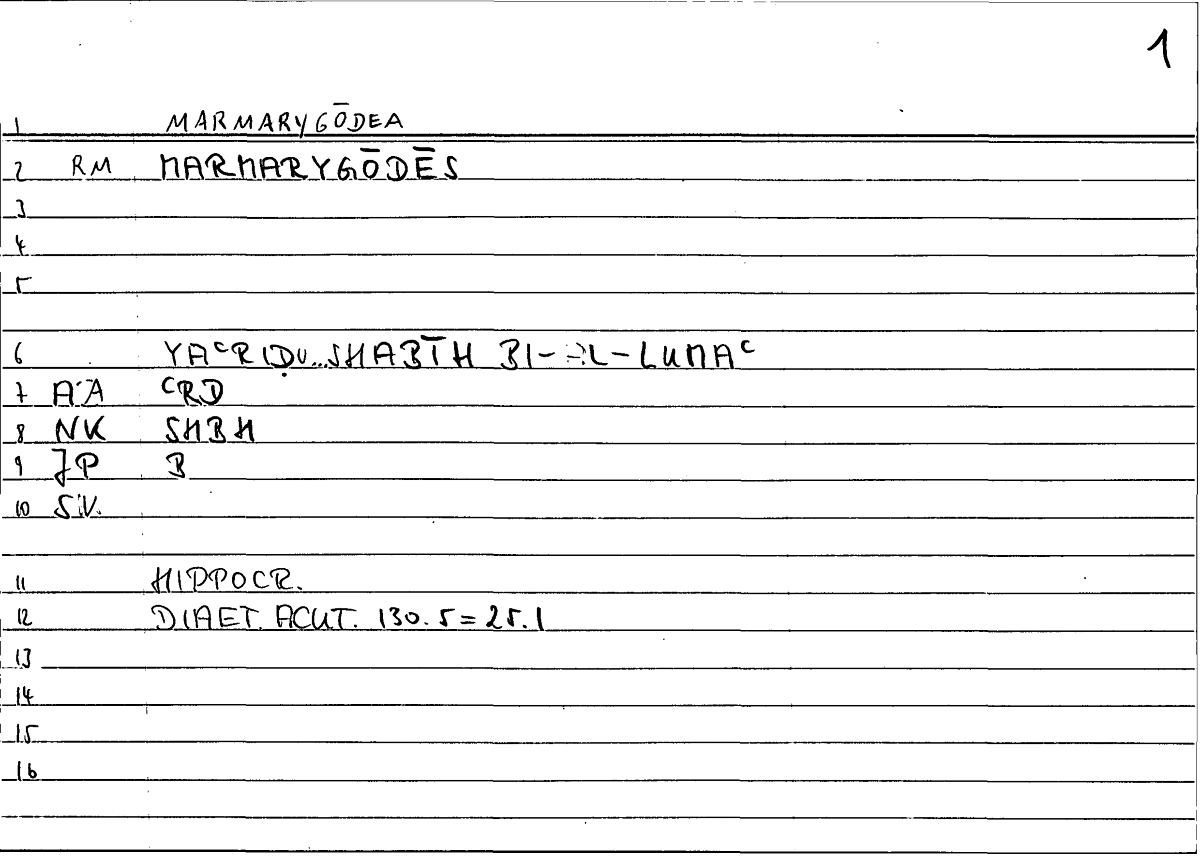 1
1 MARMARYGŌDEA
2 RM MARMARYGŌDĒS
3
4
5
6 YAᶜRIḌU...SHABĪH BI-AL-LUMAᶜ
7 A'A ᶜRḌ
8 NK SHBH
9 JP B
10 S.V.
11 HIPPOCR.
12 DIAET. ACUT. 130.5=25.1
13
14
15
16